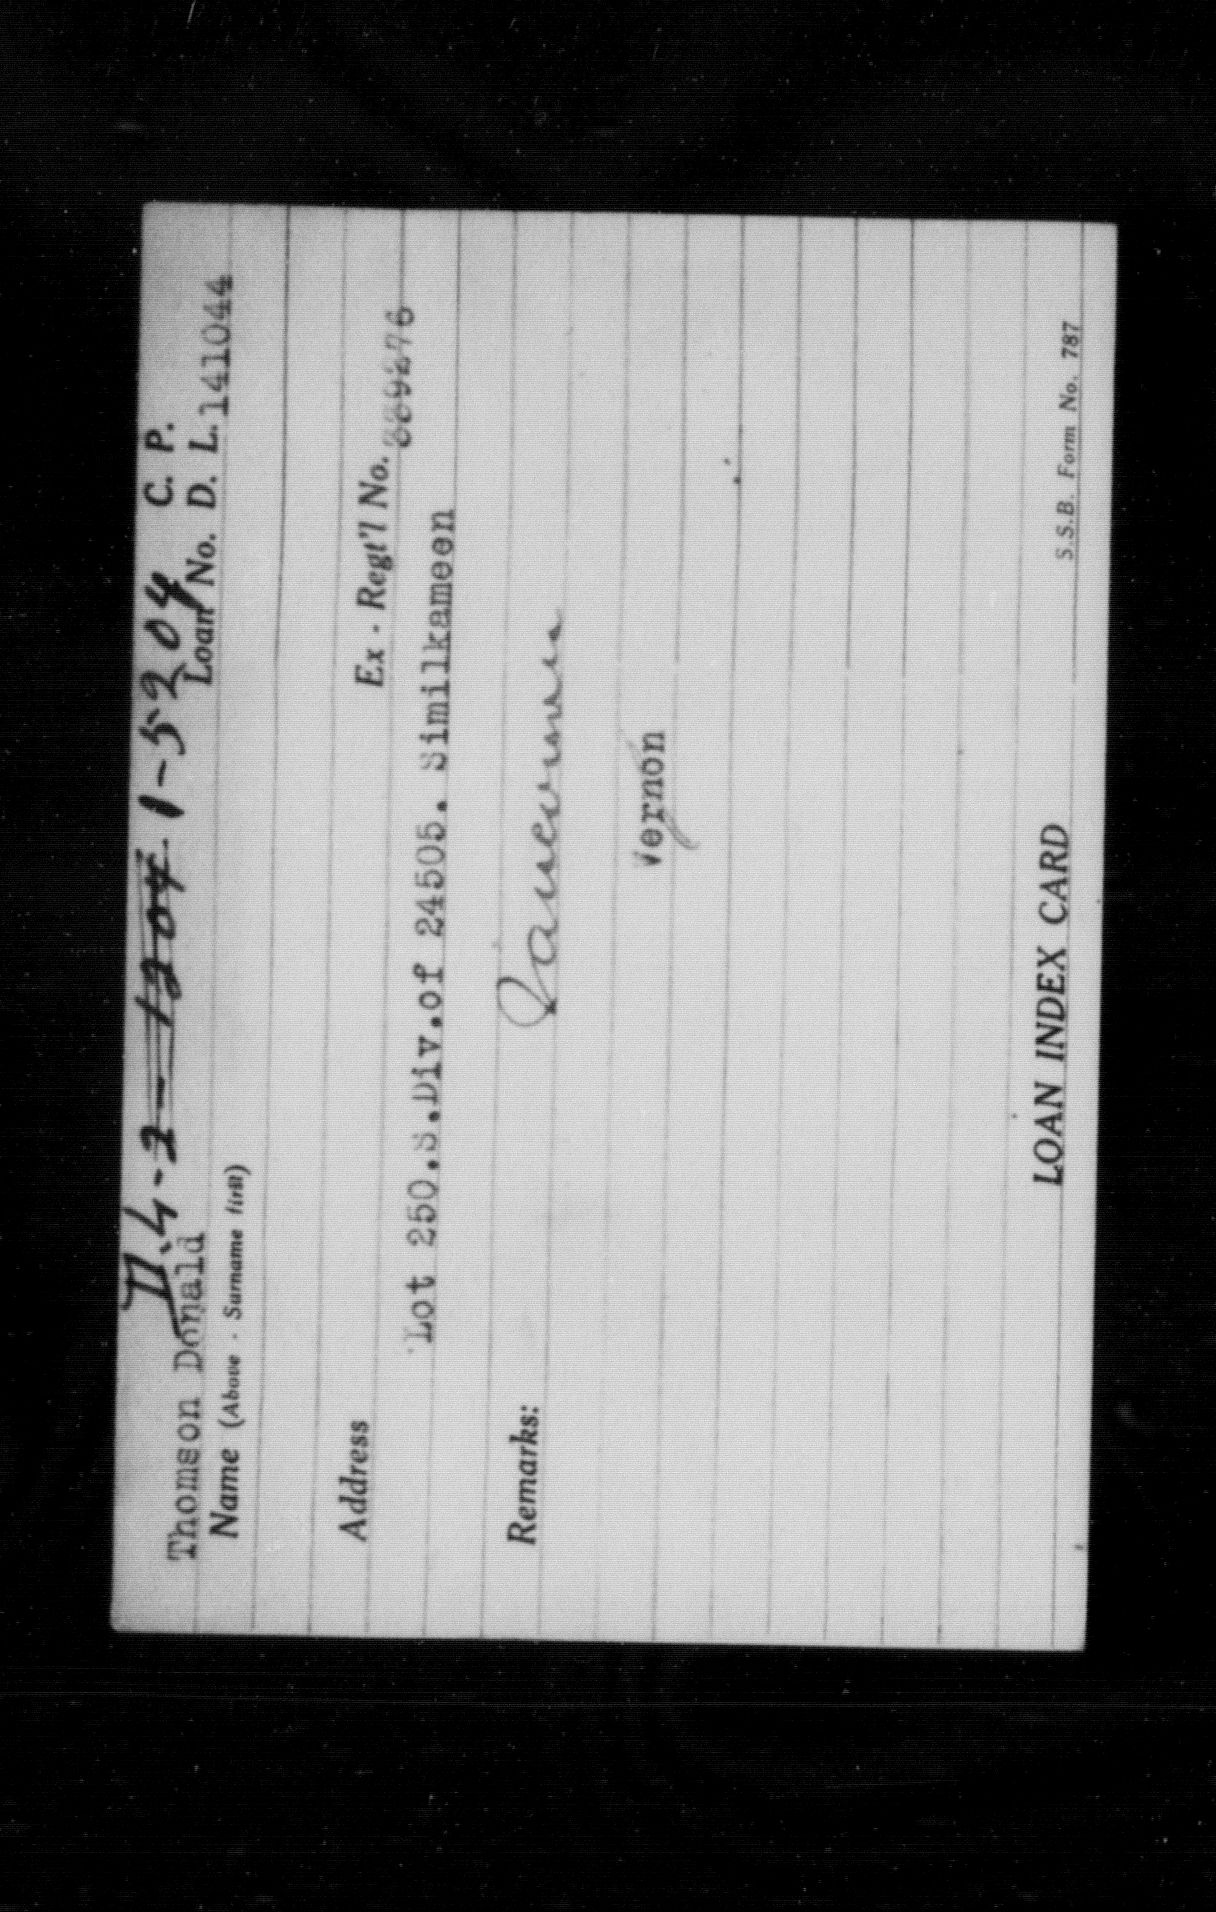 V.L-2-1204 1-5204 C. P.
Thomson Donald Loan No. D. L. 141044
Name (Above - Surname first)
Address Ex - Regt'l No.
Lot 250.S.Div.of 2450S. Similkameen
Remarks: Vancouver
Vernon
LOAN INDEX CARD
S.S.B. Form No. 787